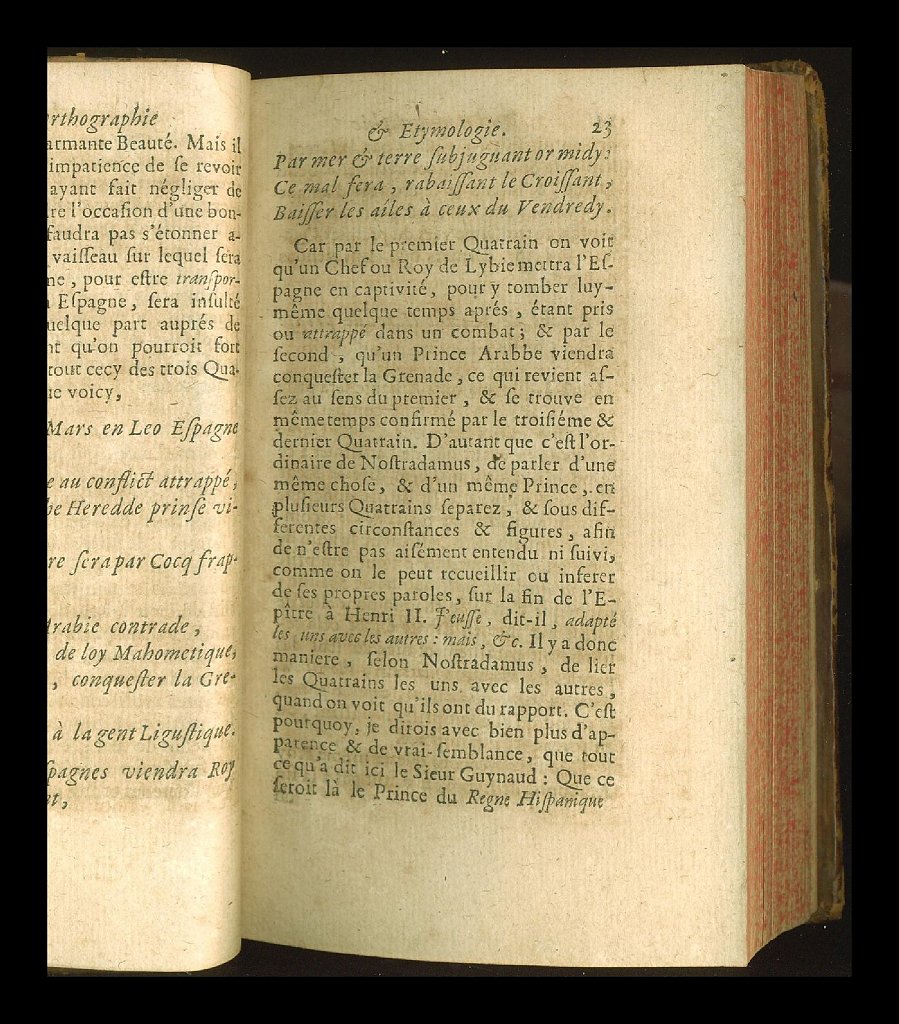 rthographie
armante Beauté. Mais il
impatience de ſe revoir
ayant fait négliger de
re l'occaſion d'une bon-
faudra pas s'étonner a-
vaiſſeau ſur lequel ſera
ne, pour eſtre tranſpor-
Eſpagne, ſera inſulté
uelque part auprés de
nt qu'on pourroit fort
tout cecy des trois Qua-
ie voicy,
Mars en Leo Eſpagne
e au conflict attrappé,
he Heredde prinſe vi-
re ſera par Cocq frap-
Arabie contrade,
de loy Mahometique,
, conqueſter la Gre-
à la gent Liguſtique.
ſpagnes viendra Roy
nt,
& Etymologie. 23
Par mer & terre ſubjuguant or midy:
Ce mal ſera, rabaiſſant le Croiſſant,
Baiſſer les aîles à ceux du Vendredy.
Car par le premier Quatrain on voit
qu'un Chef ou Roy de Lybie mettra l'Eſ-
pagne en captivité, pour y tomber luy-
même quelque temps aprés, étant pris
ou attrappé dans un combat; & par le
ſecond, qu'un Prince Arabbe viendra
conqueſter la Grenade, ce qui revient aſ-
ſez au ſens du premier, & ſe trouve en
même temps confirmé par le troiſiéme &
dernier Quatrain. D'autant que c'eſt l'or-
dinaire de Noſtradamus, de parler d'une
même choſe, & d'un même Prince, en
pluſieurs Quatrains ſeparez, & ſous dif-
ferentes circonſtances & figures, afin
de n'eſtre pas aiſément entendu ni ſuivi,
comme on le peut recueillir ou inferer
de ſes propres paroles, ſur la fin de l'E-
pître à Henri II. J'euſſe, dit-il, adapté
les uns avec les autres: mais, &c. Il y a donc
maniere, ſelon Noſtradamus, de lier
les Quatrains les uns avec les autres,
quand on voit qu'ils ont du rapport. C'eſt
pourquoy, je dirois avec bien plus d'ap-
parence & de vrai-ſemblance, que tout
ce qu'a dit ici le Sieur Guynaud: Que ce
ſeroit là le Prince du Regne Hiſpanique